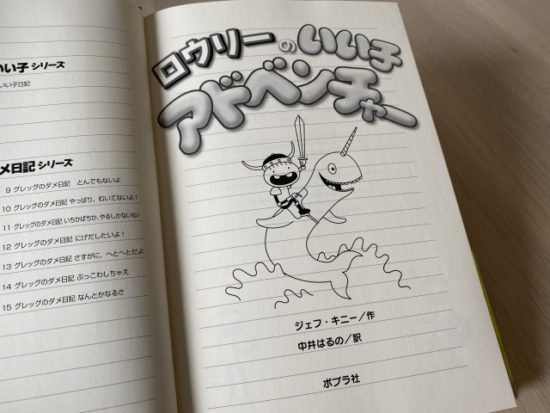 いい子 シリーズ
いい子日記
メ日記 シリーズ
9 グレッグのダメ日記 とんでもないよ
10 グレッグのダメ日記 やっぱり、むいてないよ!
11 グレッグのダメ日記 いちかばちか、やるしかないね!
12 グレッグのダメ日記 にげだしたいよ!
13 グレッグのダメ日記 さすがに、へとへとだよ
14 グレッグのダメ日記 ぶっこわしちゃえ
15 グレッグのダメ日記 なんとかなるさ
ロウリーのいい子
アドベンチャー
ジェフ・キニー/作
中井はるの/訳
ポプラ社